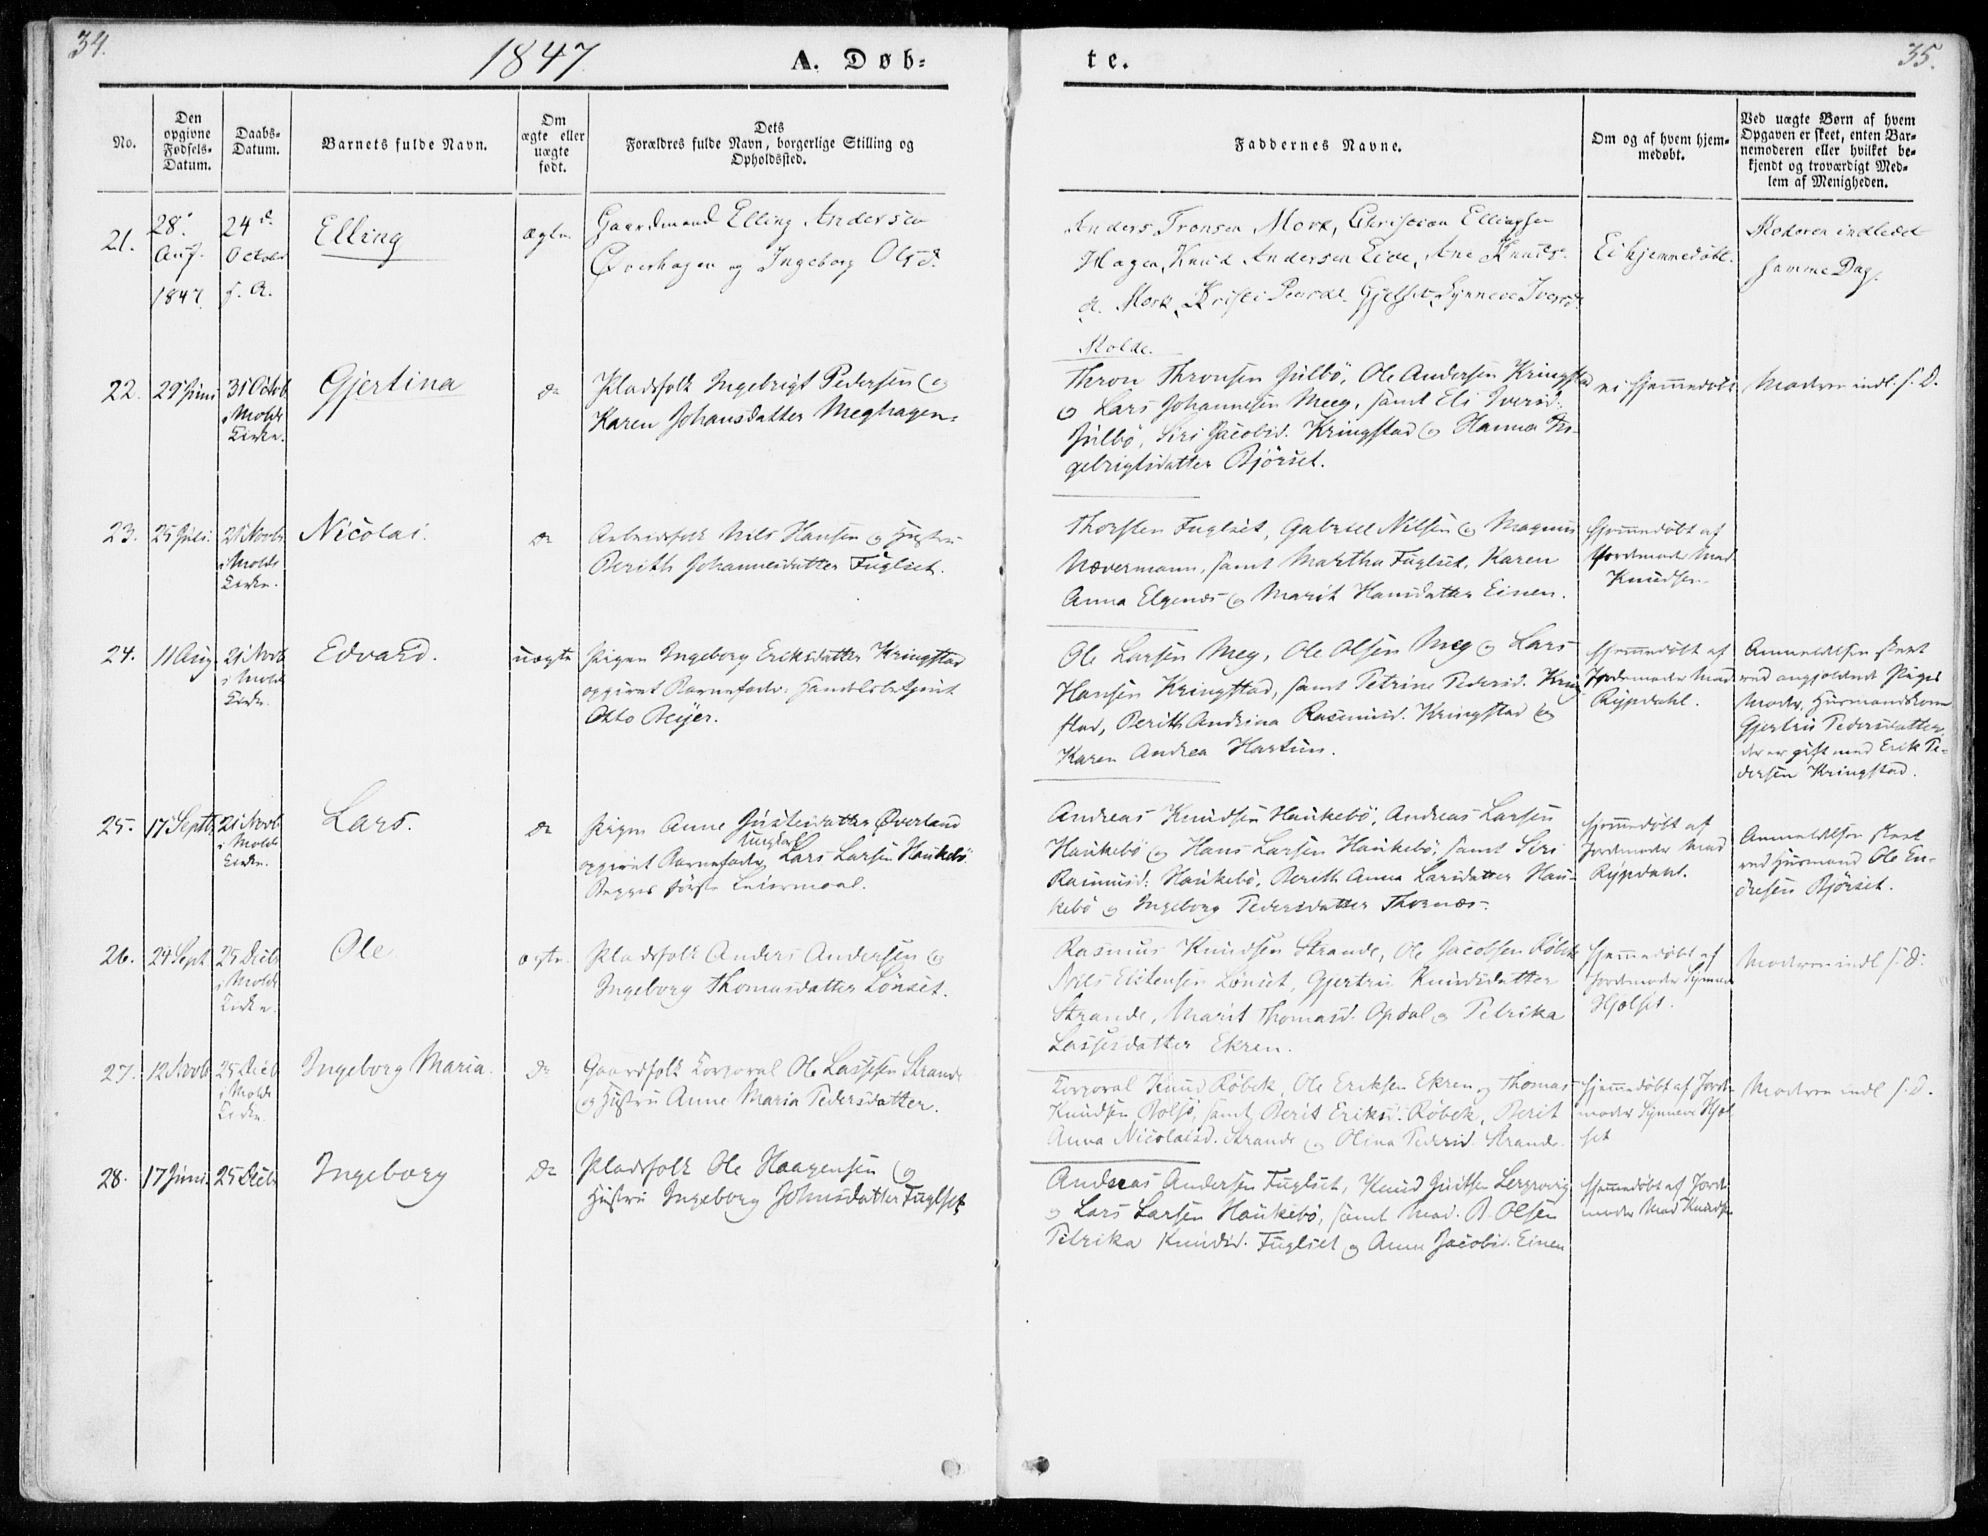 34.
1847.
A. Døb-
te.
35.
No.
Den opgivne Fødsels-Datum.
Daabs-Datum.
Barnets fulde Navn.
Om ægte eller uægte født.
Dets Forældres fulde Navn, borgerlige Stilling og Opholdssted.
Faddernes Navne.
Om og af hvem hjem-
medøbt.
Ved uægte Børn af hvem
Opgaven er skeet, enten Bar-
nemoderen eller hvilket be-
kjendt og troværdigt Med-
lem af Menigheden.
21.
28.
Aug.
1847
24 d.
October
s. A.
Elling
ægte.
Gaardmand Elling Andersen
Øverhagen og Ingeborg Olsd.
Anders Tronsen Mork, Christian Ellingsen
Hagen, Knud Andersen Eide, Ane Knuds-
d. Mork, Kristi Gjelset, Synneve Iversd.
Molde.
Ei hjemmedøbt.
Moderen indledet
samme Dag.
22.
29 Juni
31 Octob
i Molde
Kirke.
Gjertina
do
Pladsfolk Ingebrigt Pedersen og
Karen Johansdatter Meghagen.
Thron Thronsen Julbö, Ole Andersen Kringstad
og Lars Johannesen Meeg, samt Eli Iversd.
Julbö, Siri Jacobsd. Kringstad og Hanna In-
gebrigtsdatter Bjørset.
ei hjemmedøbt
Moderen indl. s. D.
23.
25 Juli.
21 Novbr
i Molde
Kirke.
Nicolai.
do
Arbeidsfolk Nils Hansen og Hustru
Berith Johannesdatter Fuglset.
Thorsten Fuglset, Gabriel Nilsen og Magnus
Nævermann, samt Martha Fuglset, Karen
Anna Elgenæs og Marit Hansdatter Einen.
Hjemmedøbt af
Jordemoder Mad
Knudsen
24.
11 Aug
21 Novb
i Molde
Kirke.
Edvard.
uægte
Pigen Ingeborg Eriksdatter Kringstad
opgivet Barnefader: Handelsbetjent
Otto Beijer.
Ole Larsen Meg, Ole Olsen Meg og Lars
Hansen Kringstad, samt Petrine Pedersd. Kring
stad, Berith Andrina Rasmusd. Kringstad og
Karen Andrea Hartun.
Hjemmedøbt af
Jordemoder Mad.
Rypdahl.
Anmeldelsen skeet
ved angjeldende Piges
Moder, Huusmandskone
Gjertru Pedersdatter
der er gift med Erik Pe-
dersen Kringstad.
25.
17 Septb.
21 Novb
i Molde
Kirke.
Lars.
do
Pigen Anne Justesdatter Øverland
Ungkarl
opgivet Barnefader, Lars Larsen Haukebö
Begges første Leiermaal.
Andreas Knudsen Haukebö, Andreas Larsen
Haukebö og Hans Larsen Haukebö, samt Siri
Rasmusd. Haukebö, Berith Anna Larsdatter Hau-
kebö og Ingeborg Pedersdatter Thornæs.
Hjemmedøbt af
Jordemoder Mad
Rypdahl.
Anmeldelsen skeet
ved Husmand Ole En-
dresen Bjørset.
26.
24 Sept
25 Decb
i Molde
Kirke.
Ole
ægte.
Pladsfolk Anders Andersen og
Ingeborg Thomasdatter Lønset.
Rasmus Knudsen Strande, Ole Jacobsen Röbek
Nils Eistensen Lönset, Gjertru Knudsdatter
Strande, Marit Thomasd. Opdal og Petrika
Lassesdatter Ekren.
Hjemmedøbt af
Jordemoder Synneve
Hjelset.
Moderen indl s. D.
27.
12 Novb
25 Decb
i Molde
Kirke
Ingeborg Maria.
do
Gaardfolk Korporal Ole Lassesen Strande
og Hustru Anne Maria Pedersdatter.
Korporal Knud Röbek, Ole Eriksen Ekren og Thomas
Knudsen Bolsö, samt Berit Eriksd. Röbek, Berit
Anna Nicolaisd. Strande og Olina Pedersd. Strande.
Hjemmedøbt af Jorde-
moder Synneve Hjel
set
Moderen indl s. D.
28.
17 Juni.
25 Decb
Ingeborg
do
Pladsfolk Ole Haagensen og
Hustru Ingeborg Johnsdatter Fuglset
Andreas Andersen Fuglset, Knud
og Lars Larsen Haukebö, samt Mad. B. Olsen
Petrika Knudsd. Fuglset og Anne Jacobsd. Einen
Hjemmedøbt af Jorde-
moder Mad Knudsen